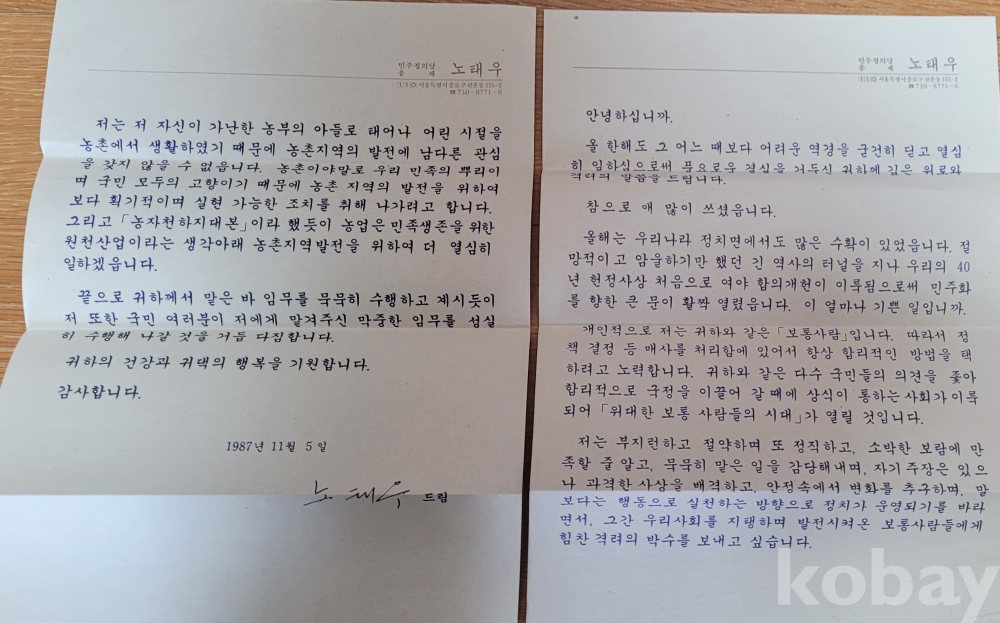 민주정의당
총 재 노태우
110 서울특별시 종로구 관훈동 155-2
☎730-8771~6
저는 저 자신이 가난한 농부의 아들로 태어나 어린 시절을
농촌에서 생활하였기 때문에 농촌지역의 발전에 남다른 관심
을 갖지 않을 수 없읍니다. 농촌이야말로 우리 민족의 뿌리이
며 국민 모두의 고향이기 때문에 농촌 지역의 발전을 위하여
보다 획기적이며 실현 가능한 조치를 취해 나가려고 합니다.
그리고 「농자천하지대본」이라 했듯이 농업은 민족생존을 위한
원천산업이라는 생각아래 농촌지역발전을 위하여 더 열심히
일하겠읍니다.
끝으로 귀하께서 맡은 바 임무를 묵묵히 수행하고 계시듯이
저 또한 국민 여러분이 저에게 맡겨주신 막중한 임무를 성실
히 수행해 나갈 것을 거듭 다짐합니다.
귀하의 건강과 귀댁의 행복을 기원합니다.
감사합니다.
1987년 11월 5일
노태우 드림
민주정의당
총 재 노태우
110 서울특별시 종로구 관훈동 155-2
☎730-8771~6
안녕하십니까.
올 한해도 그 어느 때보다 어려운 역경을 굳건히 딛고 열심
히 일하심으로써 풍요로운 결실을 거두신 귀하께 깊은 위로와
격려의 말씀을 드립니다.
참으로 애 많이 쓰셨읍니다.
올해는 우리나라 정치면에서도 많은 수확이 있었읍니다. 절
망적이고 암울하기만 했던 긴 역사의 터널을 지나 우리의 40
년 헌정사상 처음으로 여야 합의개헌이 이룩됨으로써 민주화
를 향한 큰 문이 활짝 열렸읍니다. 이 얼마나 기쁜 일입니까.
개인적으로 저는 귀하와 같은 「보통사람」입니다. 따라서 정
책 결정 등 매사를 처리함에 있어서 항상 합리적인 방법을 택
하려고 노력합니다. 귀하와 같은 다수 국민들의 의견을 좇아
합리적으로 국정을 이끌어 갈 때에 상식이 통하는 사회가 이룩
되어 「위대한 보통 사람들의 시대」가 열릴 것입니다.
저는 부지런하고 절약하며 또 정직하고, 소박한 보람에 만
족할 줄 알고, 묵묵히 맡은 일을 감당해내며, 자기 주장은 있으
나 과격한 사상을 배격하고, 안정속에서 변화를 추구하며, 말
보다는 행동으로 실천하는 방향으로 정치가 운영되기를 바라
면서, 그간 우리사회를 지탱하며 발전시켜온 보통사람들에게
힘찬 격려의 박수를 보내고 싶습니다.
kobay